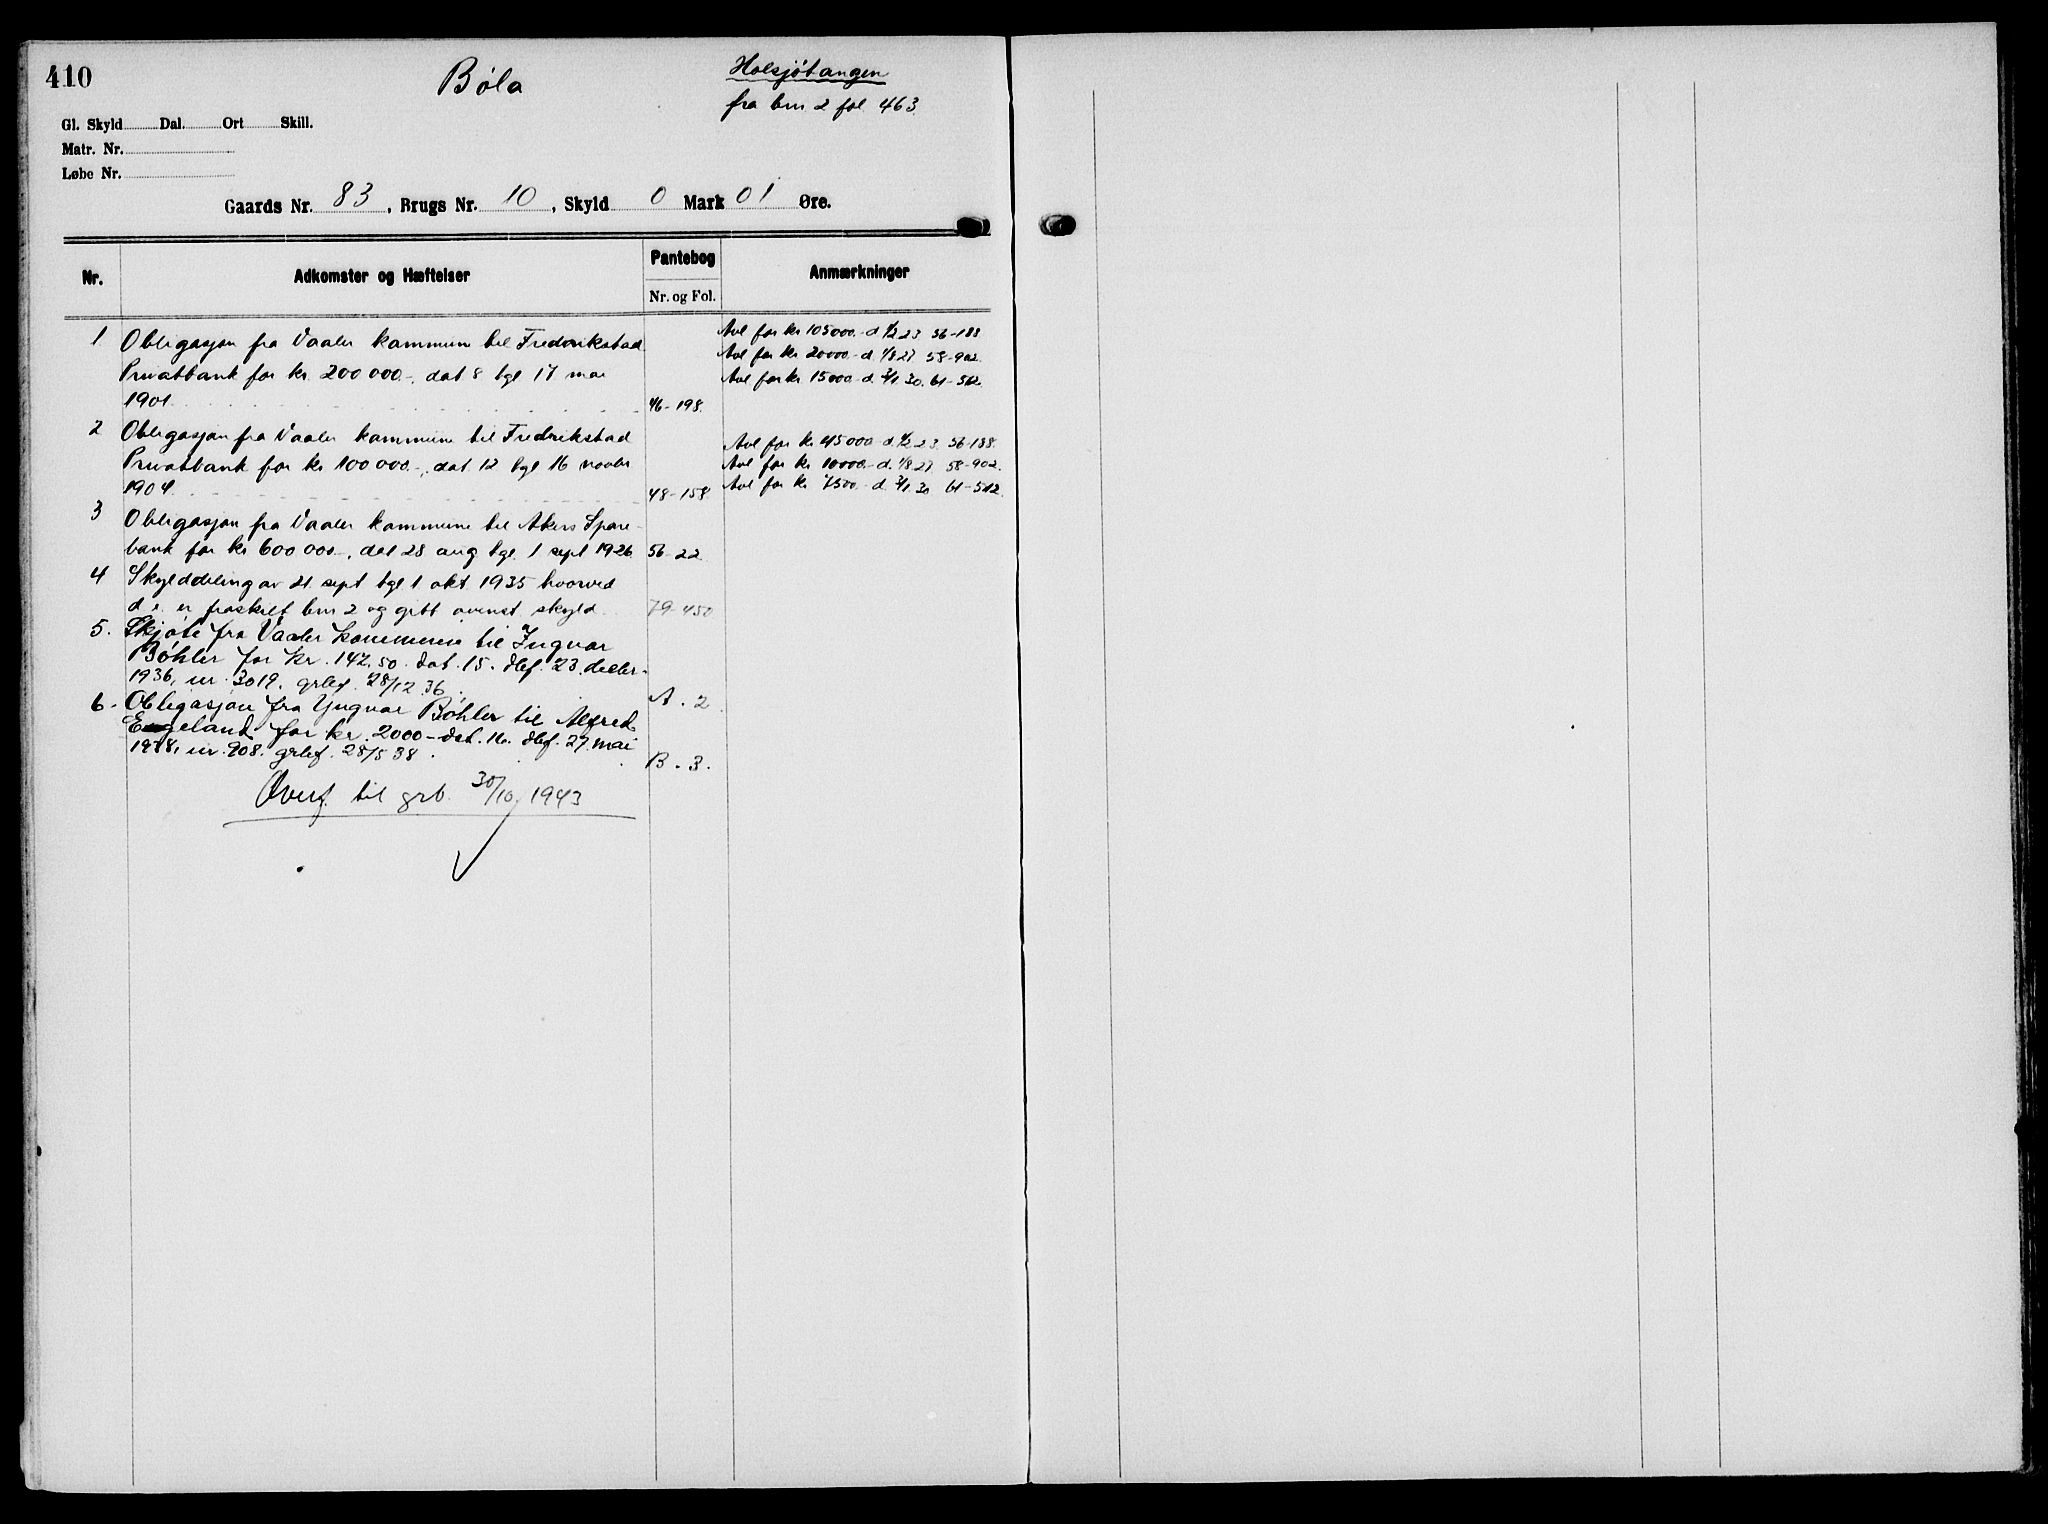 410
Bøla
Holsjøtangen
fra bnr 2 fol 463.
Gl. Skyld Dal. Ort Skill.
Matr. Nr.
Løbe Nr.
Gaards Nr. 83, Brugs Nr. 10, Skyld 0 Mark 01 Øre.
Nr. Adkomster og Hæftelser Pantebog Anmærkninger
Nr. og Fol.
1 Obligasjon fra Vaaler kommune til Fredrikstad
Privatbank for kr. 200 000.-, dat 8 tgl 17 mai
1901. 46-198.
Avl for kr 105000.- d. 1/2 23 56-188.
Avl for kr 20000.- d. 1/8 27. 58-902.
Avl for kr 15000.- d. 3/1 30. 61-512.
2 Obligasjon fra Vaaler kommune til Fredrikstad
Privatbank for kr 100 000.-, dat 12 tgl 16 novbr
1904. 48-158.
Avl for kr 45000.- d. 1/2 23. 56-188.
Avl for kr 10000.- d. 1/8 27. 58-902.
Avl for kr 7500.- d. 3/1 30 61-512.
3 Obligasjon fra Vaaler kommune til Akers Spare-
bank for kr 600 000.-, dat 28 aug tgl. 1 sept 1926. 56-22.
4 Skylddeling av 21. sept tgl 1 okt 1935 hvorved
d. e. er fraskilt bnr 2 og gitt ovenst. skyld. 79-450
5. Skjøte fra Vaaler kommune til Yngvar
Bøhler for kr. 142.50. dat. 15. dbf. 23. desbr.
1936, nr. 3019. grbf. 28/12 36. A. 2
6. Obligasjon fra Yngvar Bøhler til Alfred
Engeland for kr. 2000.- dat. 16. dbf. 27. mai
1938, nr. 908. grbf. 28/5 38. B. 3.
Overf. til grb. 30/10 1943